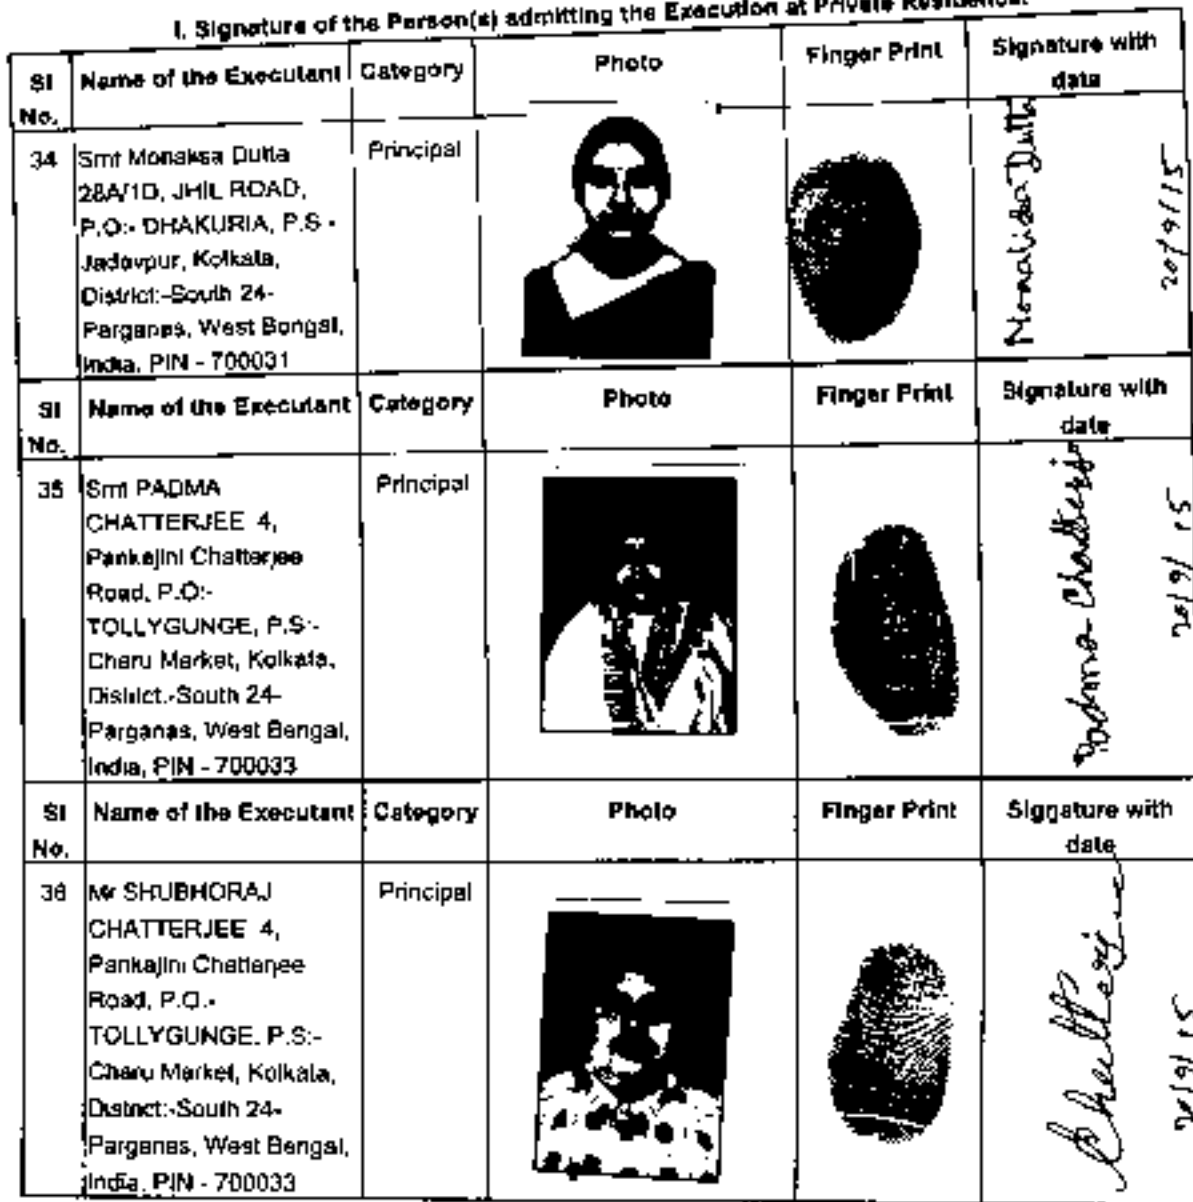 I. Signature of the Person(s) admitting the Execution at Private Residence.
Sl No. Name of the Executant Category Photo Finger Print Signature with date
34 Smt Monalisa Dutta Principal
28A/1D, JHIL ROAD,
P.O:- DHAKURIA, P.S:-
Jadavpur, Kolkata,
District:-South 24-
Parganas, West Bengal,
India, PIN - 700031
Monalisa Dutta
20/9/15
Sl No. Name of the Executant Category Photo Finger Print Signature with date
35 Smt PADMA Principal
CHATTERJEE 4,
Pankajini Chatterjee
Road, P.O:-
TOLLYGUNGE, P.S:-
Charu Market, Kolkata,
District:-South 24-
Parganas, West Bengal,
India, PIN - 700033
Padma Chatterjee
20/9/15
Sl No. Name of the Executant Category Photo Finger Print Signature with date
36 Mr SHUBHORAJ Principal
CHATTERJEE 4,
Pankajini Chatterjee
Road, P.O:-
TOLLYGUNGE, P.S:-
Charu Market, Kolkata,
District:-South 24-
Parganas, West Bengal,
India, PIN - 700033
20/9/15